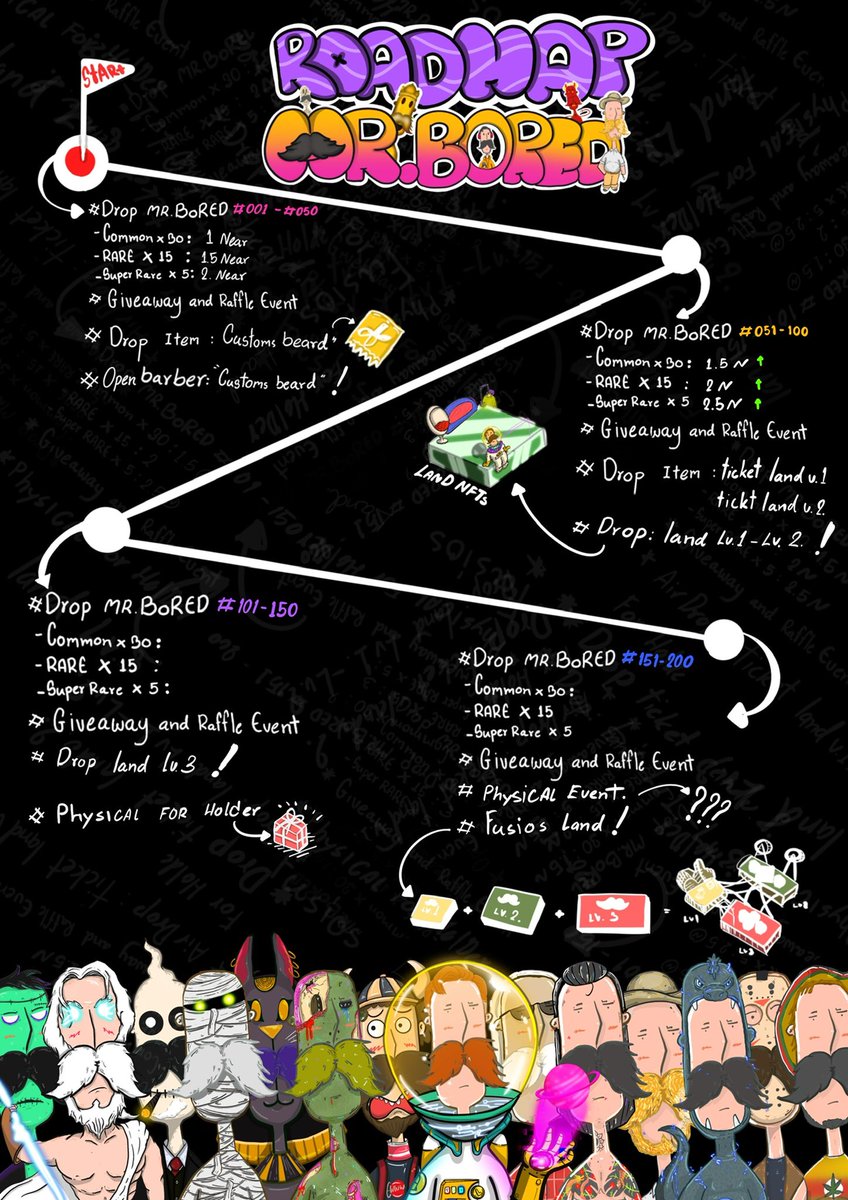 ROADMAP
MR.BORED
START
#Drop MR.BoRED #001 - #050
- Common x 30 : 1 Near
- RARE X 15 : 1.5 Near
- Super Rare x 5 : 2. Near
# Giveaway and Raffle Event
# Drop Item : Customs beard"
# Open barber: "Customs beard" !
#Drop MR.BoRED #051-100
- Common x 30 : 1.5 N ↑
- RARE X 15 : 2 N ↑
- Super Rare x 5 2.5 N ↑
# Giveaway and Raffle Event
# Drop Item : ticket land v.1
tickt land v.2.
# Drop: land Lv.1 - Lv. 2. !
LAND NFTs
#Drop MR.BoRED #101-150
- Common x 30 :
- RARE X 15 :
- Super Rare x 5 :
# Giveaway and Raffle Event
# Drop land lv.3 !
# Physical for Holder
#Drop MR.BoRED #151-200
- Common x 30 :
- RARE X 15
- Super Rare x 5
# Giveaway and Raffle Event
# Physical Event. ???
# Fusios Land !
Lv.1 + Lv.2. + Lv.3 =
Lv1
Lv2
Lv3